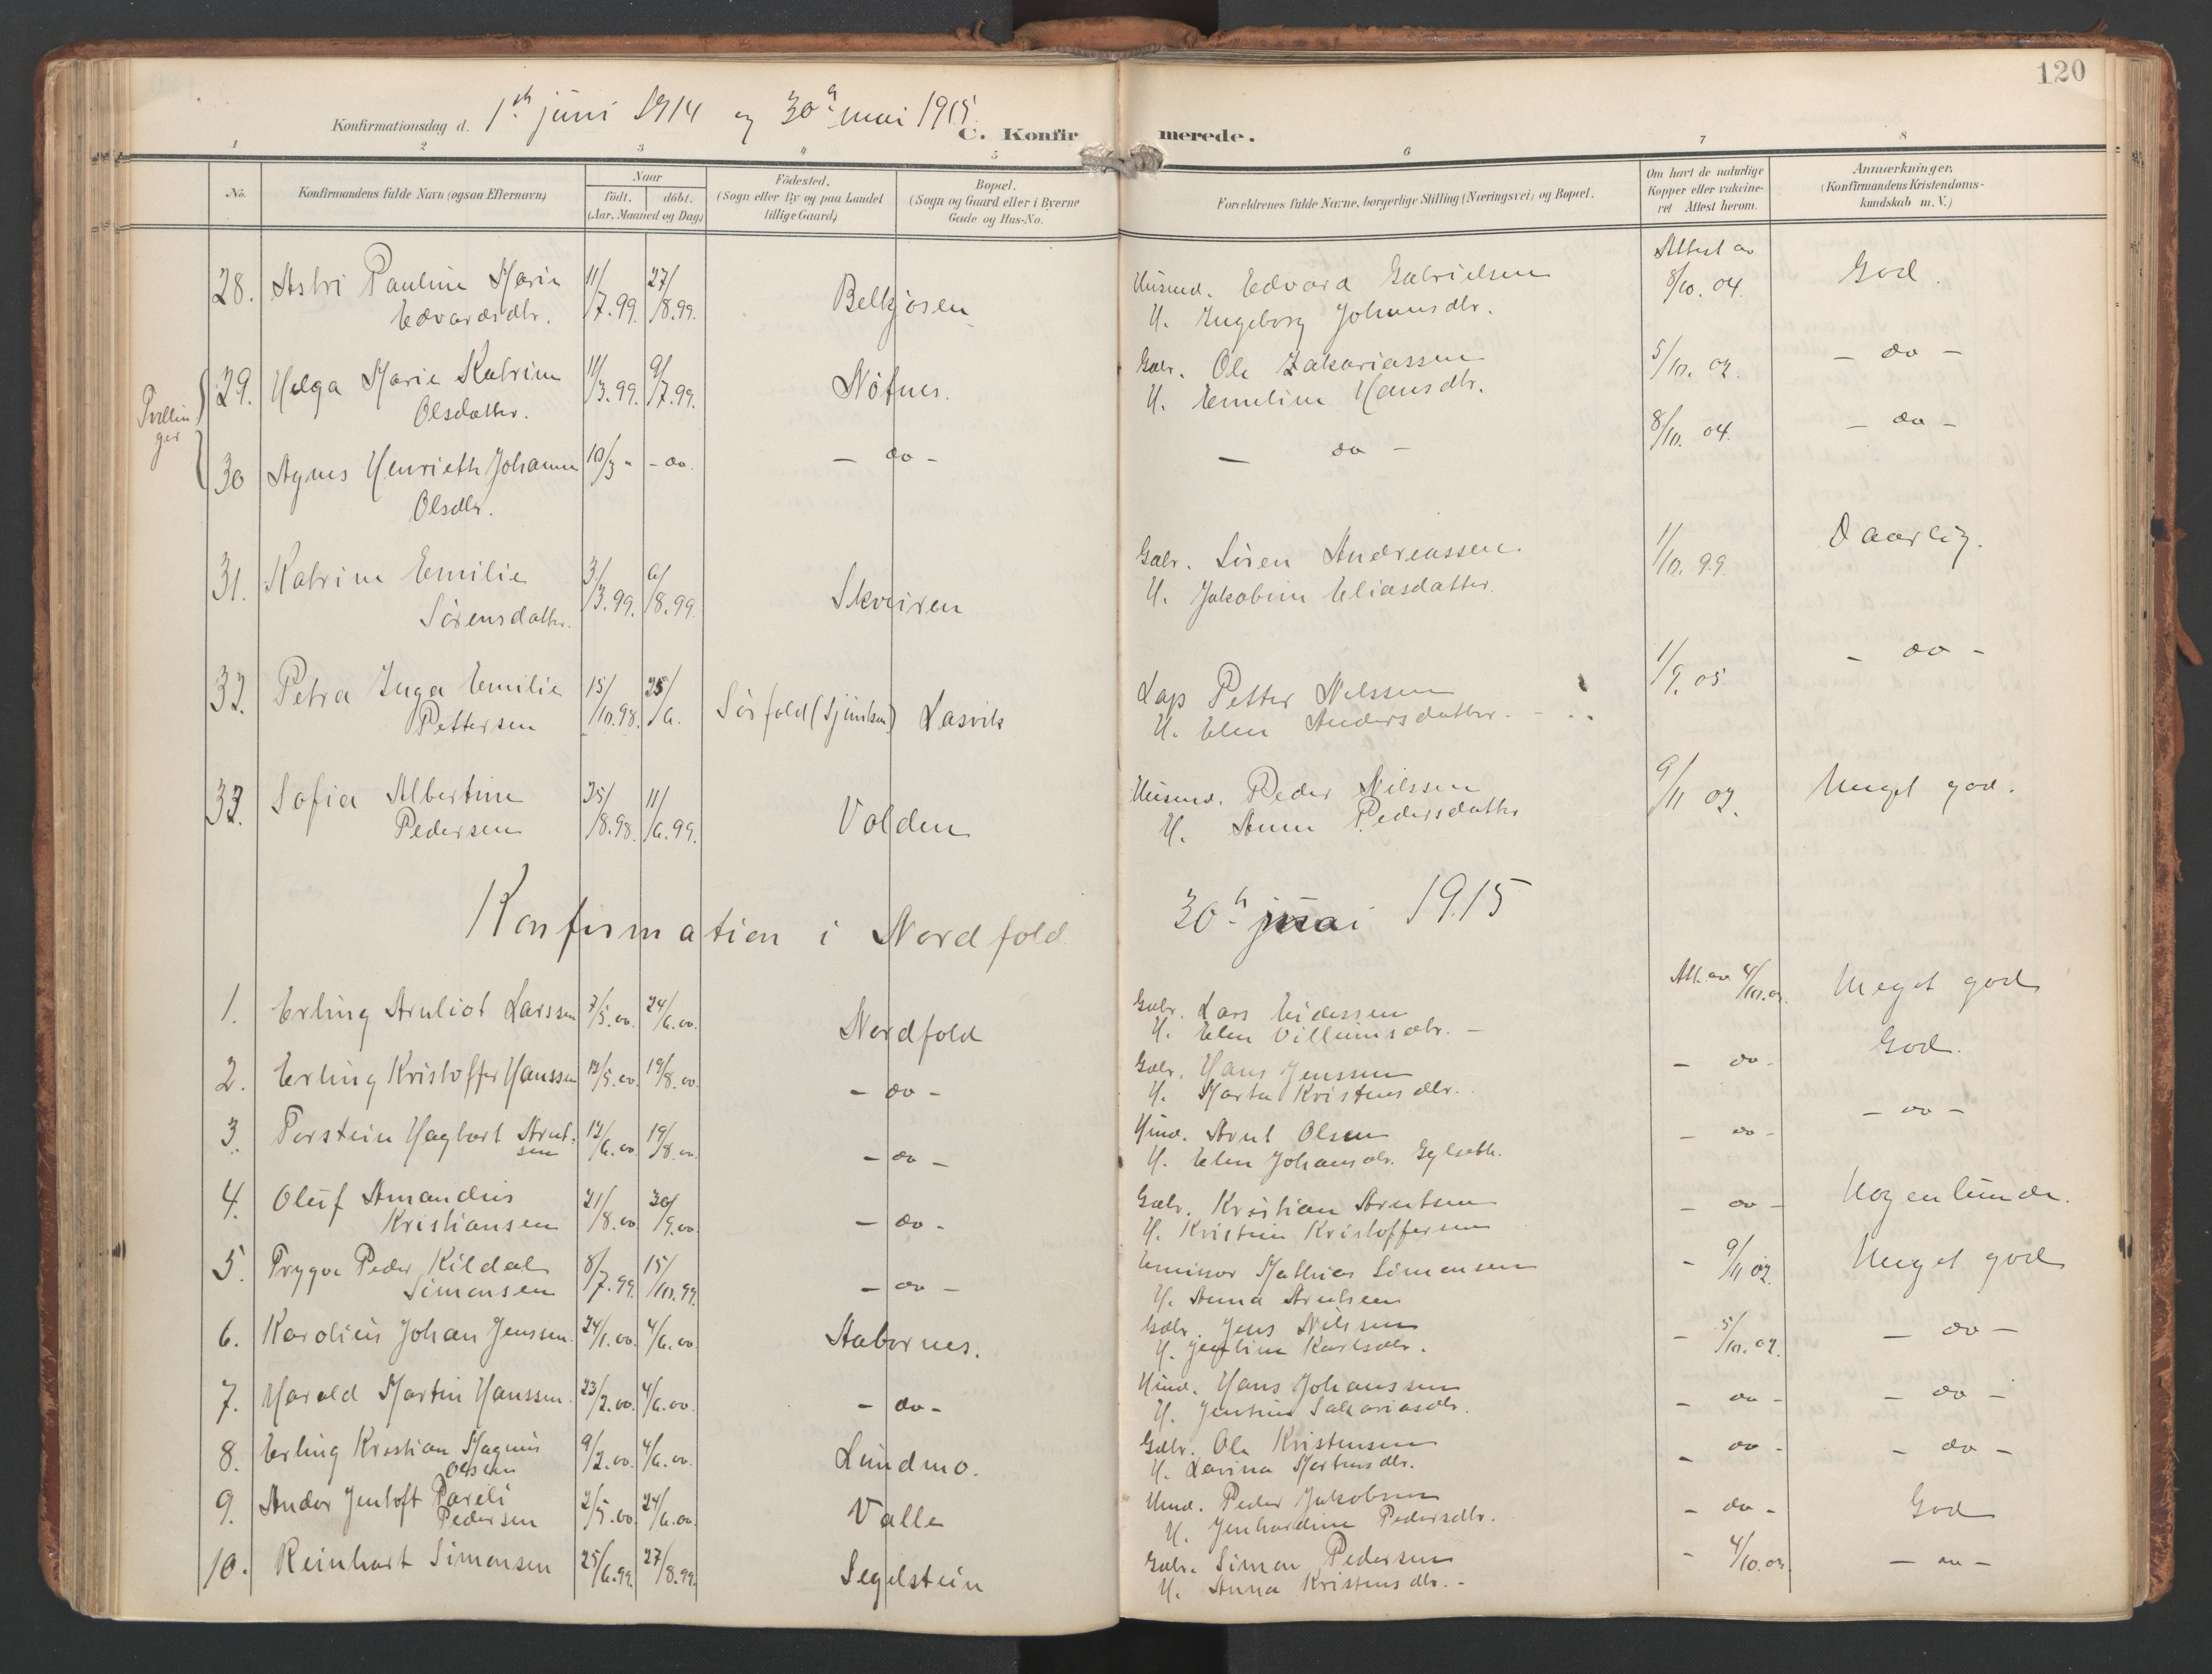 120
Konfirmationsdag d. 1ste juni 1914 og 30te mai 1915.
C. Konfirmerede.
1 2 3 4 5 6 7 8
No.
Konfirmandens fulde Navn (ogsaa Efternavn)
Naar
født. døbt.
(Aar, Maaned og Dag)
Fødested.
(Sogn eller By og paa Landet
tillige Gaard)
Bopæl.
(Sogn og Gaard eller i Byerne
Gade og Hus-No.
Forældrenes fulde Navne, borgerlige Stilling (Næringsvei) og Bopæl.
Om havt de naturlige
Kopper eller vaksine-
ret Attest herom.
Anmærkninger,
(Konfirmandens Kristendoms-
kundskab m. V.)
28. Astri Pauline Marie 11/7.99. 27/8.99. Husmd. Edvard Gabrielsen Attest av 8/10. 04. God.
Edvardsdtr. H. Ingeborg Johansdtr.
Tvillin
ger
29. Helga Marie Katrine 11/3.99. 9/7.99. Nöfnes. Gbr. Ole Zakariassen 5/10. 02. - do -
Olsdatter. H. Emeline Hansdtr.
30 Agnes Henriette Johanne 10/3 " - do. - do - - do - 8/10. 04. - do -
Olsdtr.
31. Katrine Emilie 3/3.99. 6/8.99 Skveiren Gbr. Sören Andreassen 1/10. 99. Daarlig.
Sörensdatter. H. Jakobine Eliasdatter.
32. Petra Inga Emilie 15/10.98. 25/6. Sörfold Lasvik Lap Petter Nilssen 1/9. 05 - do -
Pettersen H. Elen Andersdatter.
33. Sofia Albertine 25/8.98. 11/6.99. Volden Husmd. Peder Nilssen 9/11 02. Meget god.
Pedersen H. Anne Pedersdatter
Konfirmation i Nordfold 30te mai 1915
1. Erling Arnliot Larssen 7/5.00. 24/6.00. Nordfold Gbr. Lars Eidessen Att. av 4/10.02. Meget god
H. Elen Villumsdtr. -
2. Erling Kristoffer Hanssen 12/5.00. 19/8.00. - do - Gbr. Hans Jenssen - do - God.
H. Marta Kristensdtr.
3. Torstein Hagbart Arnt- 12/6.00 19/8.00. - do - Hmd. Arnt Olsen - do - - do -
sen H. Elen Johansdtr. Gylseth.
4. Oluf Amandus 21/8.00 30/9.00 - do - Gbr. Kristian Arntsen - do - Nogenlunde.
Kristiansen H. Kristine Kristoffersen
5. Trygve Peder Kildal 8/7.99. 15/10.99. - do - Emissær Mathias Simonsen - 9/11 02. Meget god
Simonsen H. Anna Arntsen
6. Karolius Johan Jenssen. 24/1.00. 4/6.00. Stabornes. Gbr. Jens Nilssen - 5/10. 02. - do -
H. Jentine Karlsdtr.
7. Harald Martin Hanssen. 23/2.00. 4/6.00. - do - Hmd. Hans Johanssen - do - - do -
H. Jentine Sakariasdtr.
8. Erling Kristian Magnus 9/2.00. 4/6.00. Lundmo. Gbr. Ole Kristensen - do - - do -
Olsen H. Lavina Mortensdtr.
9. Andor Jentoft Pareli 2/5.00. 24/6.00. Valle Hmd. Peder Jakobsen - do - God
Pedersen H. Jenhardine Pedersdtr.
10. Reinhart Simonsen 25/6.99. 27/8.99. Segelstein Gbr. Simon Pedersen - 4/10.02. - do -
H. Anna Kristensdtr. -